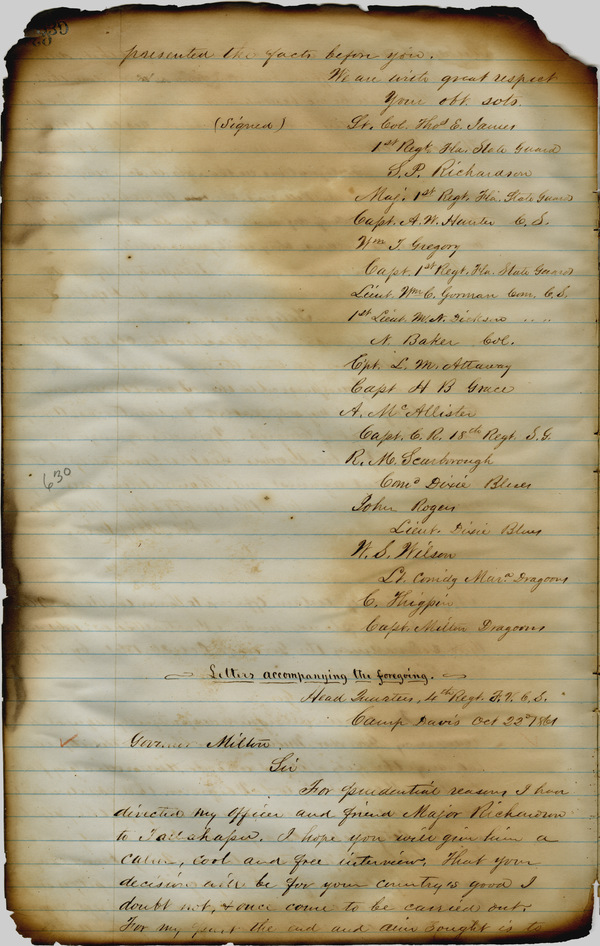 presented the facts before you.
We are with great respect
Your obt. svts.
(Signed) Lt. Col. Thos E. James
1st Regt. Fla. State Guard
S. P. Richardson
Maj. 1st Regt. Fla. State Guard
Capt. A. W. Hunter C. S.
Wm T. Gregory
Capt. 1st Regt. Fla. State Guard
Lieut. Wm C. Gorman Com. C. S.
1st Lieut. M. N. Dickson " "
N. Baker Col.
Cpt. L. M. Attaway
Capt H B Grace
A. McAllister
Capt. C. R. 18th Regt. S. G.
R. M. Scarborough
Comd Dixie Blues
630
John Rogers
Lieut. Dixie Blues
W. S. Wilson
Lt. Comdg Mara Dragoons
C. Thigpin
Capt. Milton Dragoons
Letters accompanying the foregoing.
Head Quarters, 4th Regt. F. V. C. S.
Camp Davis Oct 22d 1861
Governor Milton
Sir
For prudential reasons I have
directed my officer and friend Major Richardson
to Tallahassee. I hope you will give him a
calm, cool and free interview. That your
decision will be for your country's good I
doubt not, & once come to be carried out.
For my part the end and aim sought is to